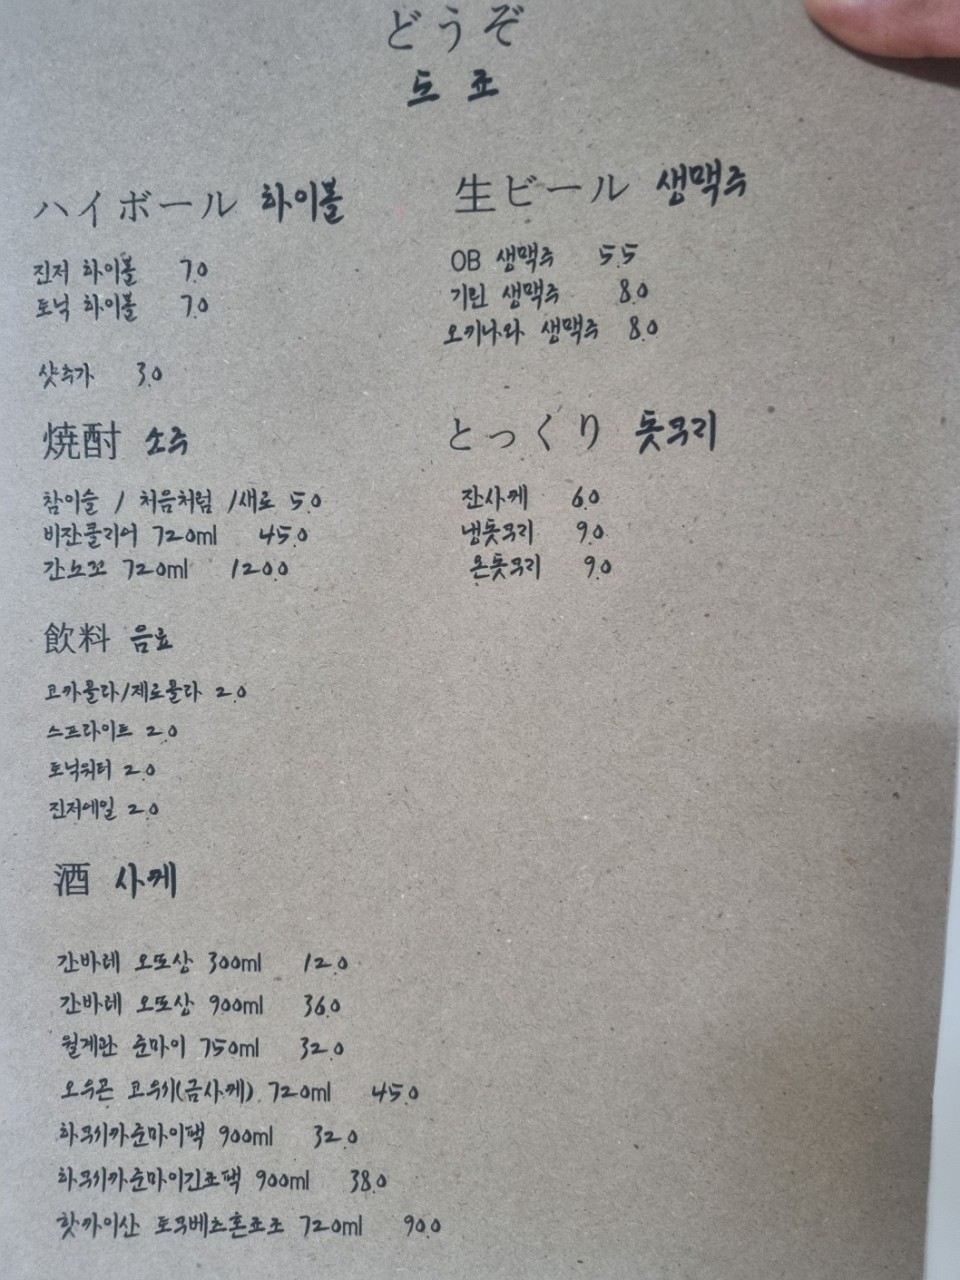 どうぞ
도 죠
ハイボール 하이볼
진저 하이볼 7.0
토닉 하이볼 7.0
샷추가 3.0
生ビール 생맥주
OB 생맥주 5.5
기린 생맥주 8.0
오키나와 생맥주 8.0
焼酎 소주
참이슬 / 처음처럼 /새로 5.0
비잔클리어 720ml 45.0
간노꼬 720ml 120.0
とっくり 돗쿠리
잔사케 6.0
냉돗쿠리 9.0
온돗쿠리 9.0
飲料 음료
코카콜라/제로콜라 2.0
스프라이트 2.0
토닉워터 2.0
진저에일 2.0
酒 사케
간바레 오또상 300ml 12.0
간바레 오또상 900ml 36.0
월계관 준마이 750ml 32.0
오우곤 코우시(금사케) 720ml 45.0
하쿠시카준마이팩 900ml 32.0
하쿠시카준마이긴죠팩 900ml 38.0
핫카이산 토쿠베츠혼죠조 720ml 90.0